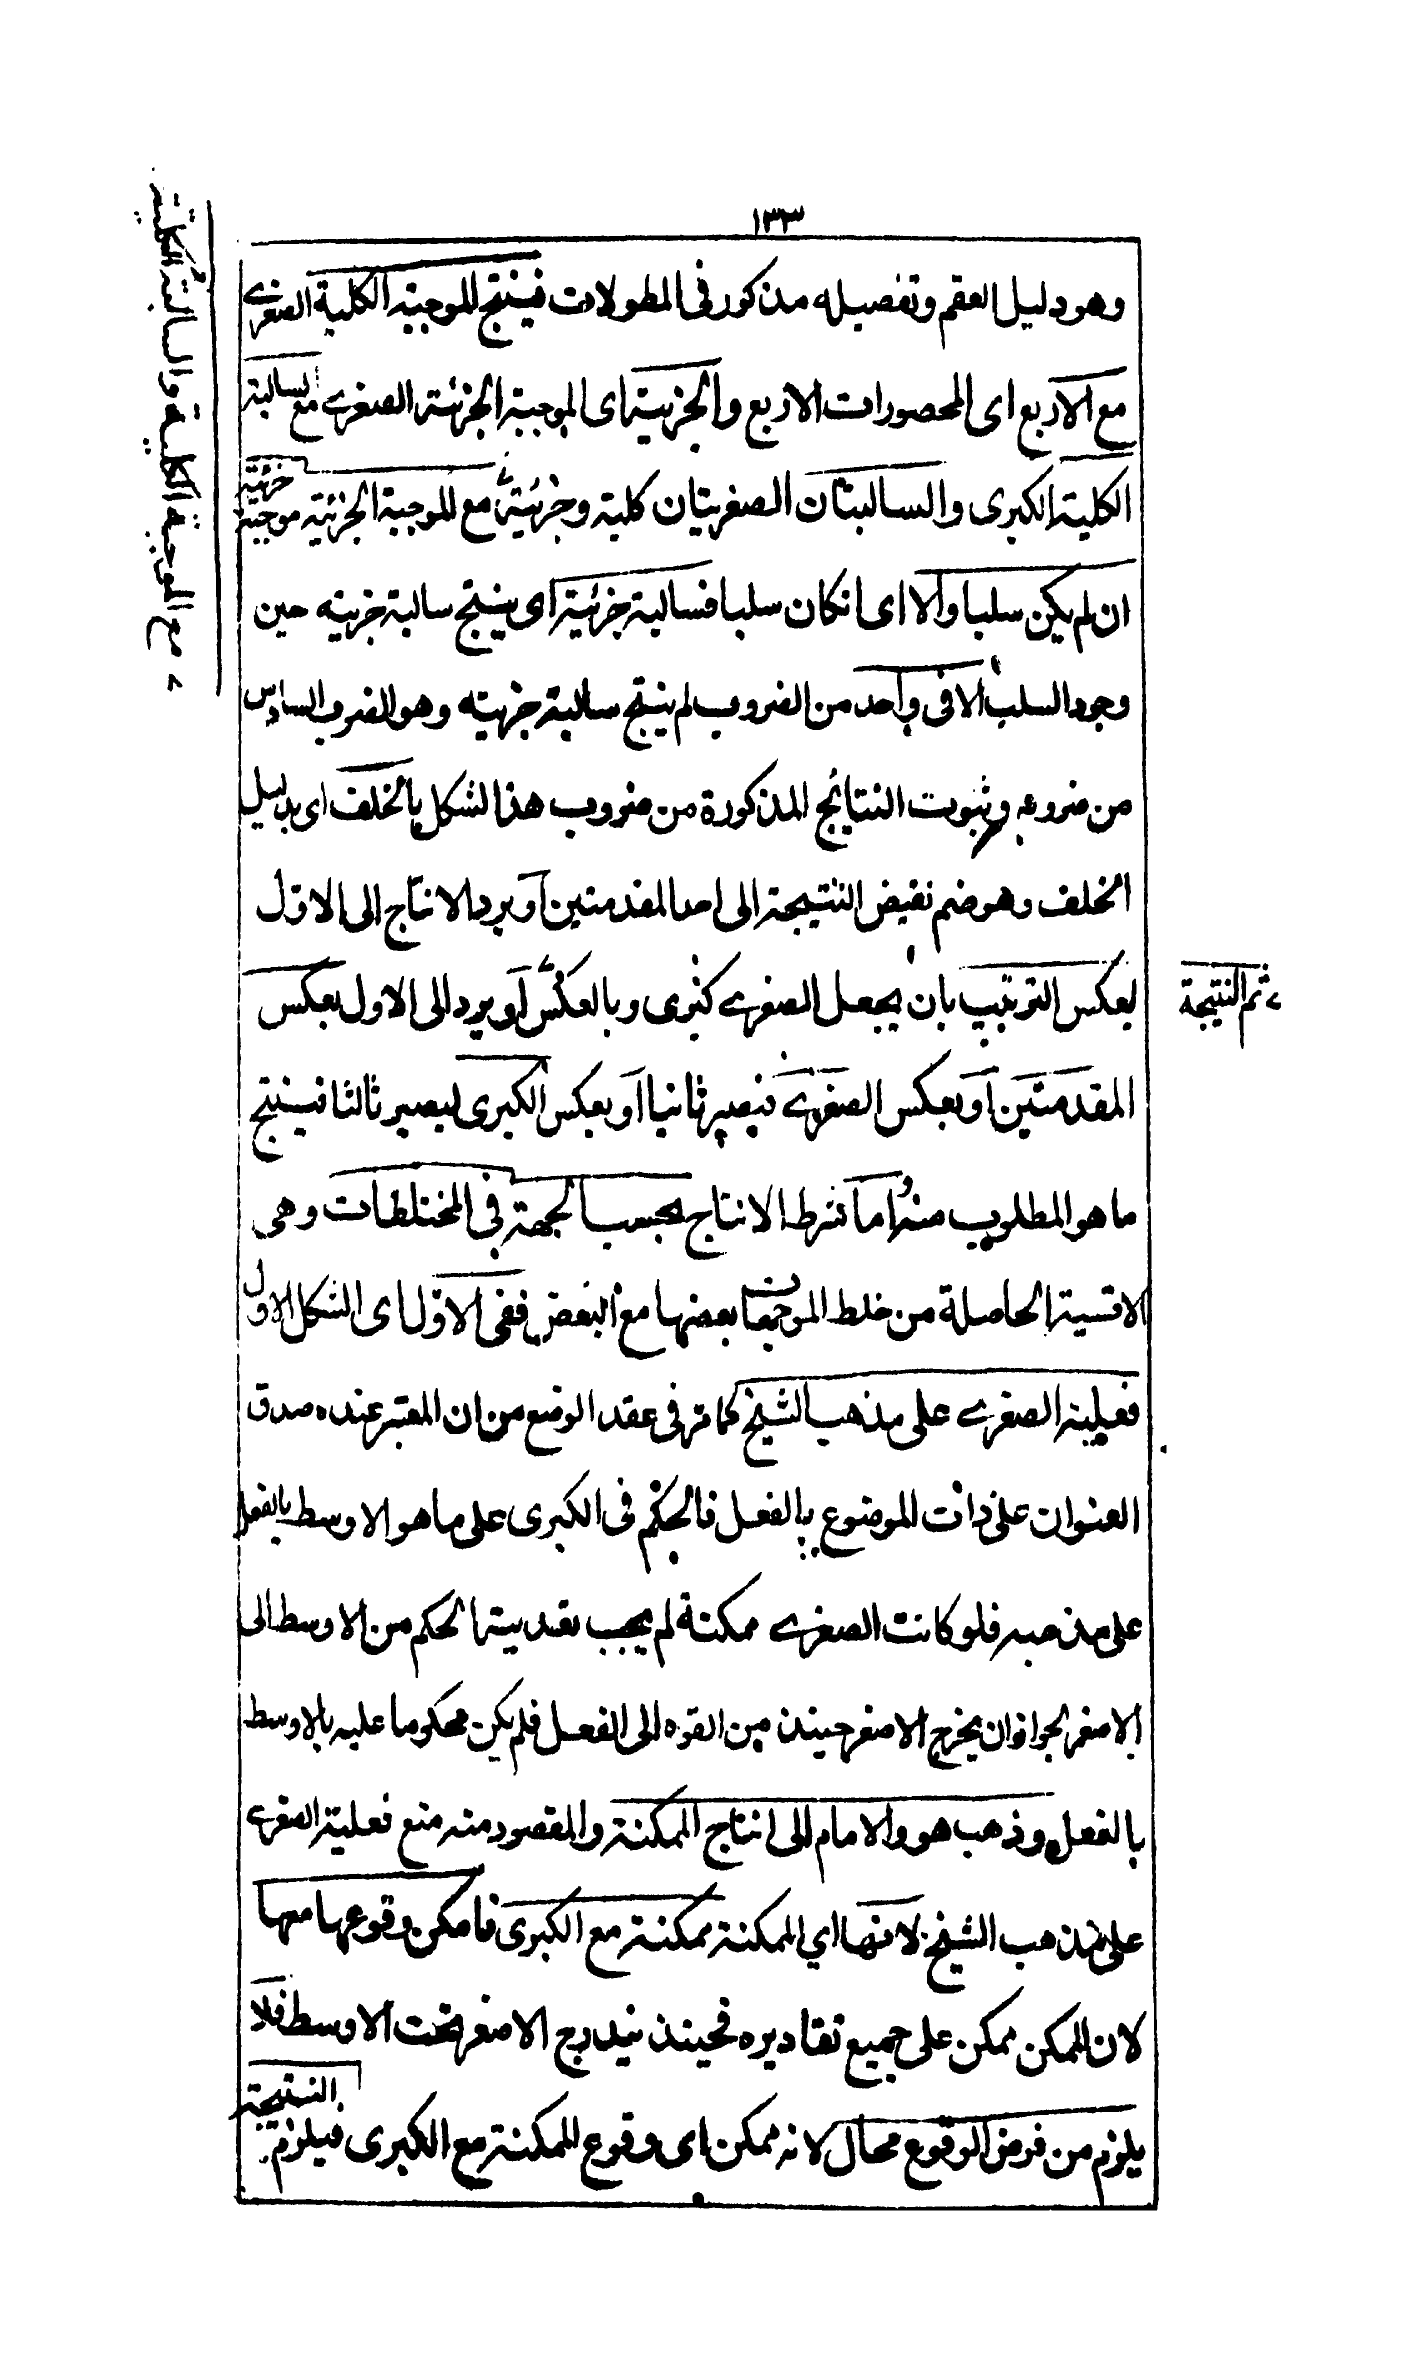 ١٣٣
وهو دليل العقم وتفصيله مذكور فى المطولات فينتج الموجبة الكلية الصغرى
مع الاربع اى المحصورات الاربع والجزئية اى الموجبة الجزئية الصغرى مع السالبة
الكلية الكبرى والسالبتان الصغريتان كلية وجزئية مع الموجبة الجزئية موجبة جزئية
ان لم يكن سلبا والا اى انكان سلبا فسالبة جزئية اى ينتج سالبة جزئية حين
وجود السلب الا فى واحد من الضروب لم ينتج سالبة جزئية وهو الضرب السادس
من ضروبه وثبوت النتائج المذكورة من ضروب هذا الشكل بالخلف اى بدليل
الخلف وهو ضم نقيض النتيجة الى احد المقدمتين او برد الانتاج الى الاول
بعكس الترتيب بان يجعل الصغرى كبرى وبالعكس او برد الى الاول بعكس
المقدمتين او بعكس الصغرى فيصير ثانيا او بعكس الكبرى ليصير ثالثا فينتج
ما هو المطلوب منه واما شرط الانتاج بحسب الجهة فى المختلطات وهى
الاقسية الحاصلة من خلط الموجهات بعضها مع البعض ففى الاول اى الشكل الاول
فعلية الصغرى على مذهب الشيخ كما مر فى عقد الوضع من ان المعتبر عنده صدق
العنوان على ذات الموضوع بالفعل فالحكم فى الكبرى على ما هو الاوسط بالفعل
على مذهبه فلو كانت الصغرى ممكنة لم يجب تعدية الحكم من الاوسط الى
الاصغر لجواز ان يخرج الاصغر حينئذ من القوه الى الفعل فلم يكن محكوما عليه بالاوسط
بالفعل وذهب هو والامام الى انتاج الممكنة والمقصود منه منع فعلية الصغرى
على مذهب الشيخ لانها اي الممكنة ممكنة مع الكبرى فامكن وقوعها معها
لان الممكن ممكن على جميع تقاديره فحينئذ يندرج الاصغر تحت الاوسط فلا
يلزم من فرض الوقوع محال لانه ممكن اى وقوع الممكنة مع الكبرى فيلزم النتيجة
ثم النتيجة
مع الموجبة الكلية والسالبة الكلية